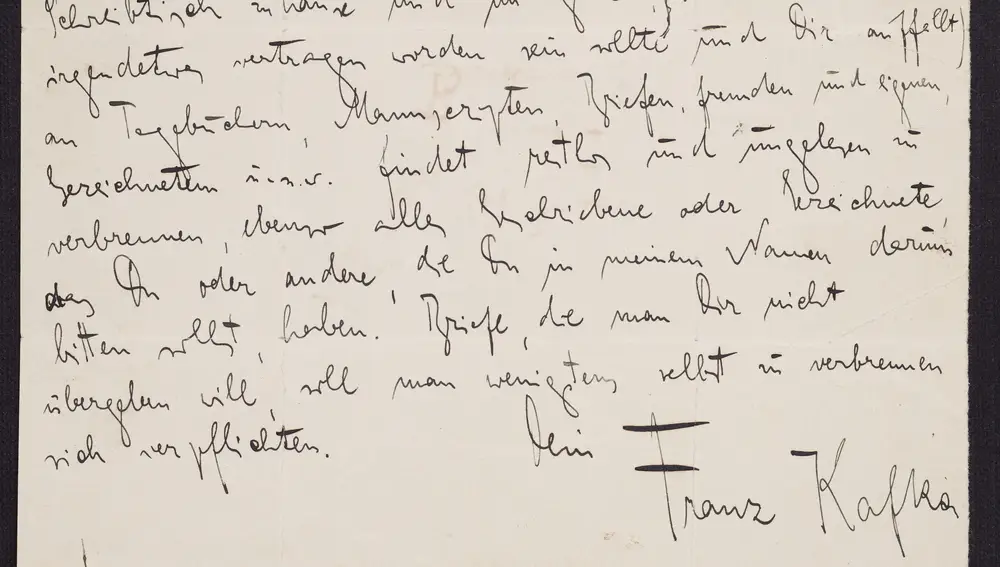 Schreibtisch zuhause und im
irgendetwas vertragen worden sein sollte und Dir auffällt)
an Tagebüchern, Manuscripten, Briefen, fremden und eignen,
Gezeichnetem u.s.w. findet restlos und ungelesen zu
verbrennen, ebenso alles Geschriebene oder Gezeichnete,
das Du oder andre, die Du in meinem Namen darum
bitten sollst, haben. Briefe, die man Dir nicht
übergeben will, soll man wenigstens selbst zu verbrennen
sich verpflichten.
Dein Franz Kafka